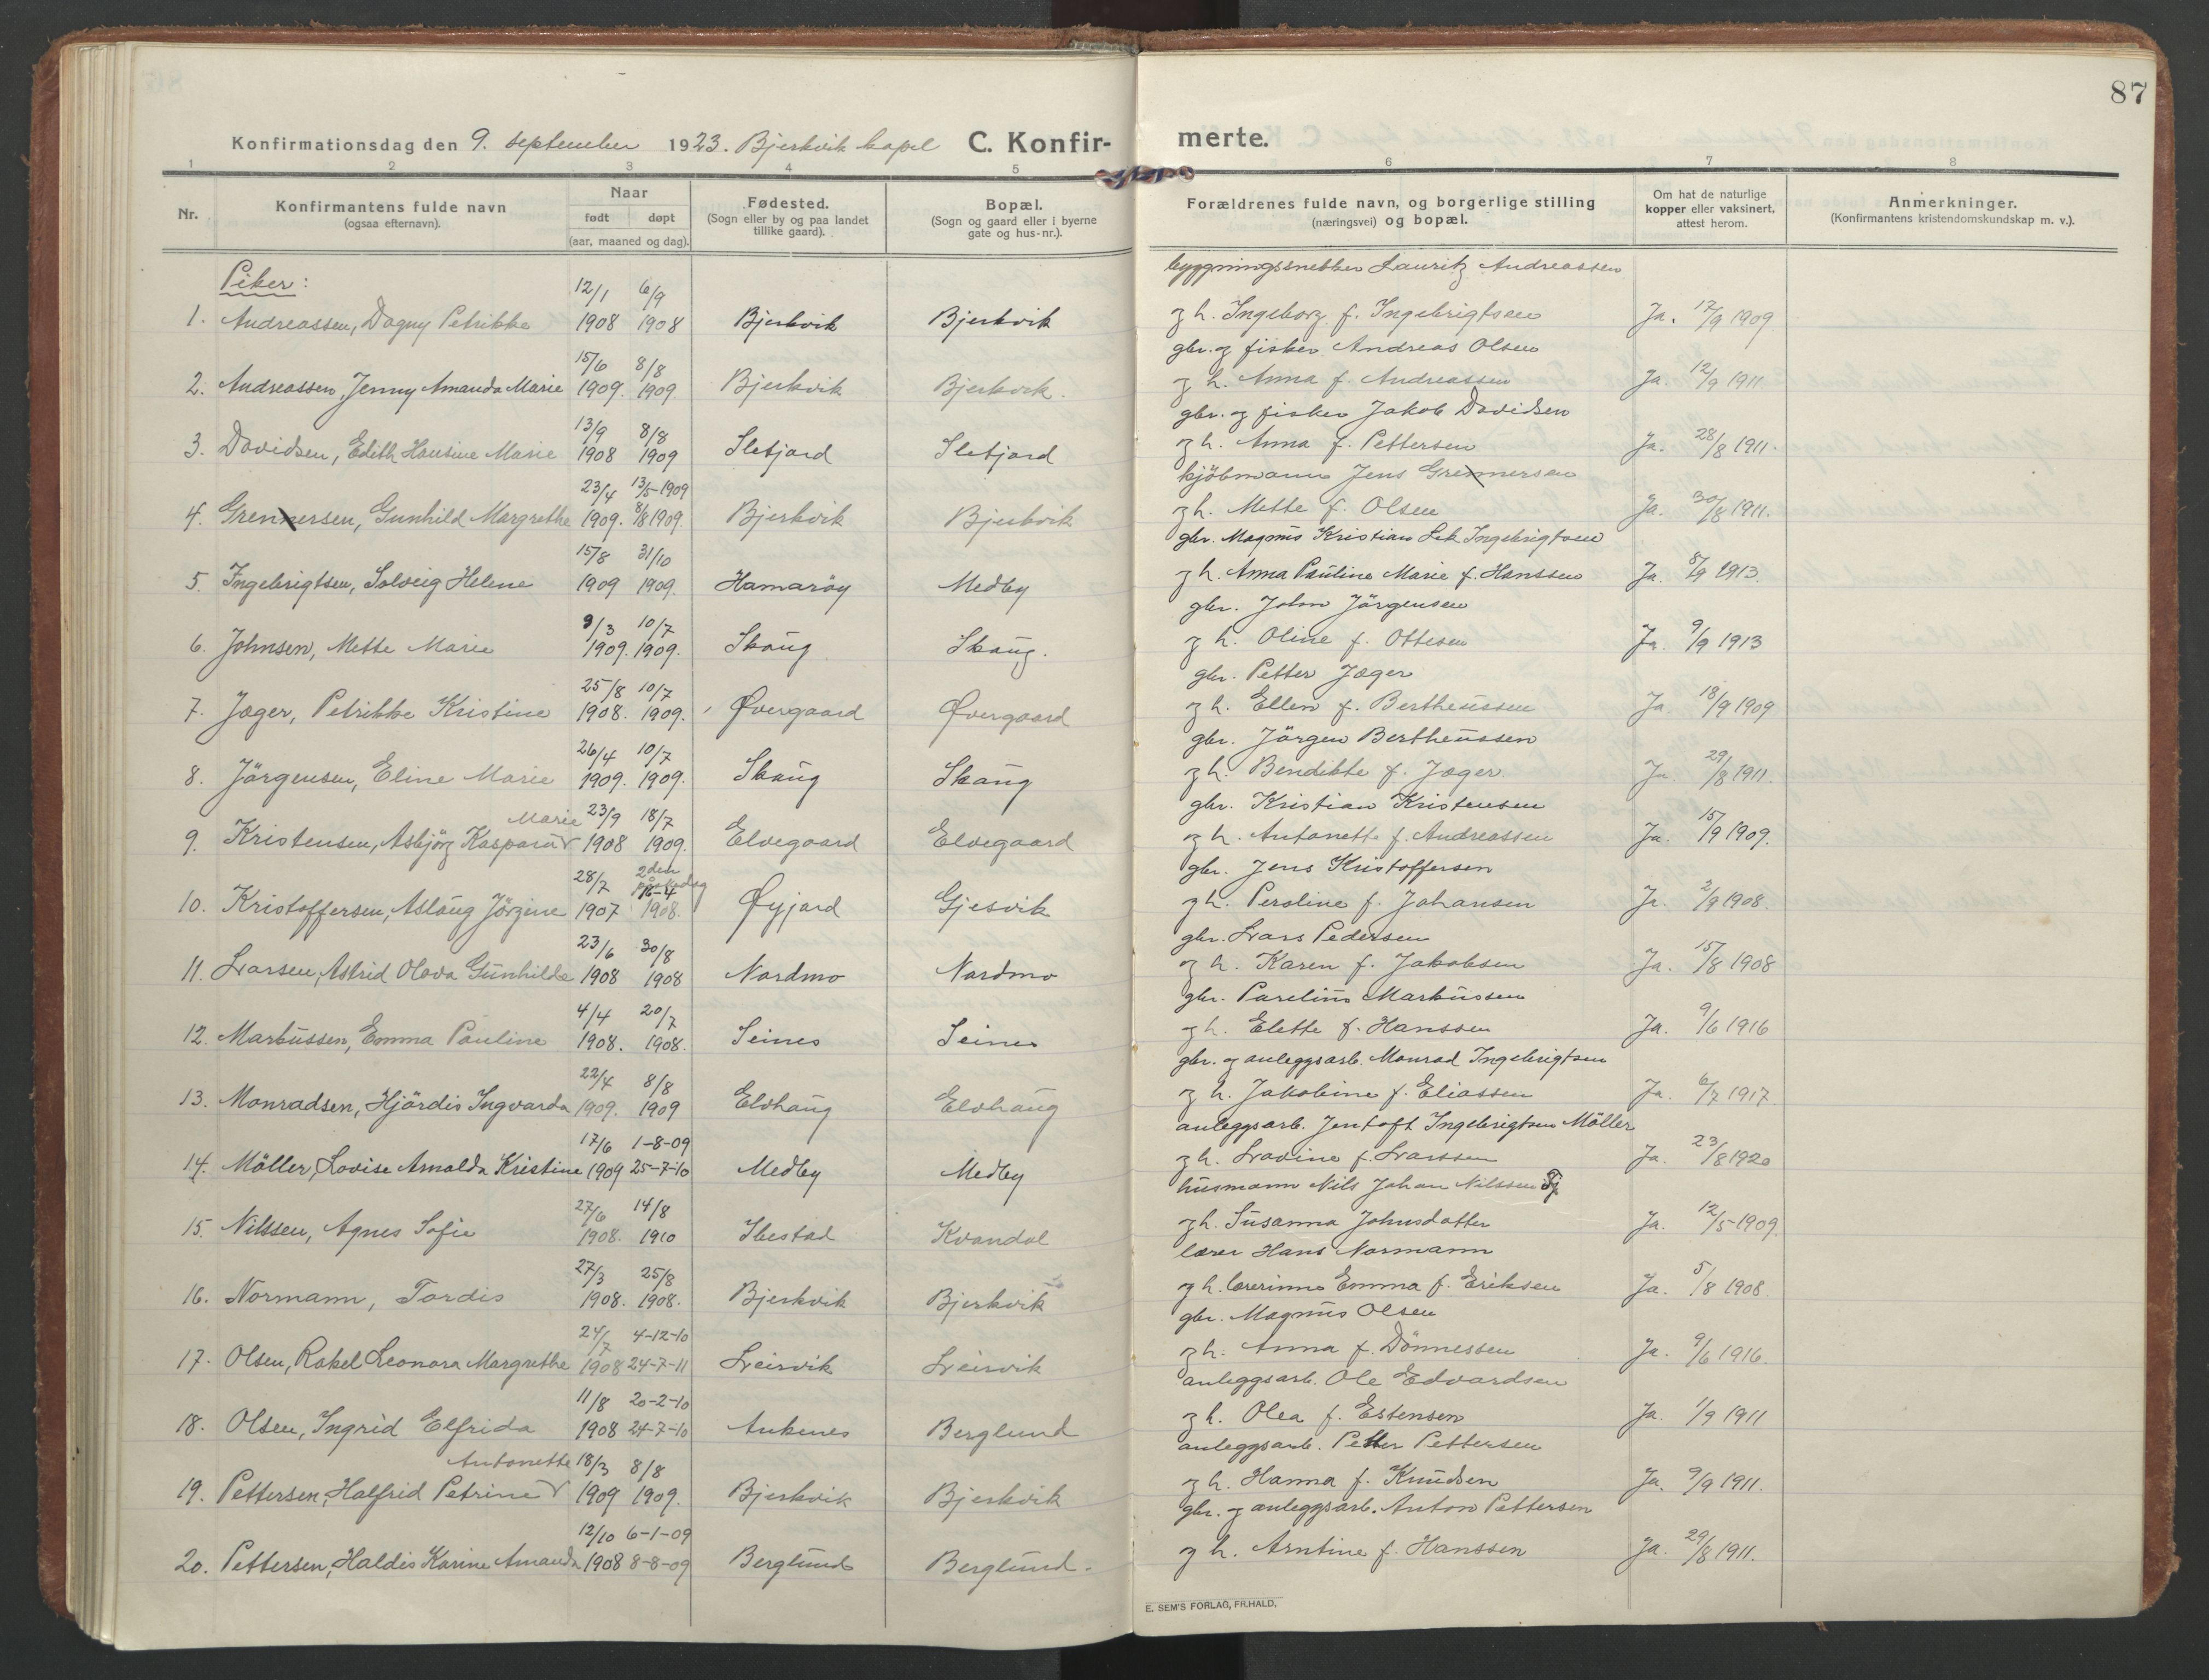 87
Konfirmationsdag den 9. september 1923. Bjerkvik kapel C. Konfir- merte.
1 2 3 4 5 6 7 8
Nr. Konfirmantens fulde navn (ogsaa efternavn). Naar født døpt (aar, maaned og dag). Fødested. (Sogn eller by og paa landet tillike gaard). Bopæl. (Sogn og gaard eller i byerne gate og hus-nr.). Forældrenes fulde navn, og borgerlige stilling (næringsvei) og bopæl. Om hat de naturlige kopper eller vaksinert, attest herom. Anmerkninger. (Konfirmantens kristendomskundskap m. v.).
Piker: 12/1 6/9 bygningssnekker Lauritz Andreassen
1. Andreassen, Dagny Petrikke 1908 1908 Bjerkvik Bjerkvik og h. Ingeborg f. Ingebrigtsen Ja. 17/9 1909
15/6 8/8 gbr. og fisker Andreas Olsen
2. Andreassen, Jenny Amanda Marie 1909. 1909 Bjerkvik Bjerkvik. og h. Anna f. Andreassen Ja 12/9 1911
13/9 8/8 gbr. og fisker Jakob Davidsen
3. Davidsen, Edith Hansine Marie 1908 1909 Sletjord Sletjord og h. Anna f. Pettersen Ja. 28/8 1911.
23/4 13/5-1909 kjöbmann Jens Grennersen
4. Grennersen, Gunhild Margrethe 1909. 8/8 1909. Bjerkvik Bjerkvik og h. Mette f. Olsen Ja. 30/8 1911.
15/8 31/10 gbr. Magnus Kristian Lek Ingebrigtsen
5. Ingebrigtsen, Solveig Helene 1909 1909. Hamaröy Medby og h. Anna Pauline Marie f. Hanssen Ja 8/9 1913.
9/3 10/7 gbr. John Jörgensen
6. Johnsen, Mette Marie 1909. 1909. Skaug Skaug. og h. Oline f. Ottesen Ja. 9/9 1913
25/8 10/7 gbr. Petter Jæger
7. Jæger, Petrikke Kristine 1908. 1909. Øvergaard Øvergaard og h. Ellen f. Bertheussen Ja 18/9 1909
26/4 10/7 gbr. Jörgen Bertheussen
8. Jörgensen, Eline Marie 1909. 1909. Skaug Skaug og h. Bendikte f. Jæger. Ja. 29/8 1911.
Marie 23/9 18/7 gbr. Kristian Kristensen
9. Kristensen, Asbjörg Kaspara 1908 1909. Elvegaard Elvegaard og h. Antonette f. Andreassen Ja. 15/9 1909.
28/7 2den påskedag 16-4 gbr. Jens Kristoffersen
10. Kristoffersen, Aslaug Jörgine 1907 1908. Øyjord Gjesvik og h. Peroline f. Johansen Ja. 2/9 1908.
23/6 30/8 gbr. Lars Pedersen
11. Larsen, Astrid Olava Gunhilde 1908 1908 Nordmo Nordmo og h. Karen f. Jakobsen Ja. 15/8 1908
4/4 20/7 gbr. Parelius Markussen
12. Markussen, Emma Pauline 1908. 1908. Seines Seines og h. Elette f. Hanssen Ja. 9/6 1916
22/4 8/8 gbr. og anleggsarb. Monrad Ingebrigtsen
13. Monradsen, Hjördis Ingvarda 1909. 1909 Elvhaug Elvhaug og h. Jakobine f. Eliassen Ja. 6/7 1917
17/6 1-8-09 anleggsarb. Jentoft Ingebrigtsen Möller
14. Möller, Lovise Arnolda Kristine 1909 25-7-10 Medby Medby og h. Lovine f. Larssen Ja. 23/8 1920
27/6 14/8 husmann Nils Johan Nilssen
15. Nilssen, Agnes Sofie 1908. 1910 Ibestad Kvandal og h. Susanna Johnsdatter Ja. 12/5-1909.
27/3 25/8 lærer Hans Normann
16. Normann, Tordis 1908. 1908. Bjerkvik Bjerkvik og h. lærerinne Emma f. Eriksen Ja. 5/8 1908.
24/7 4-12-10 gbr. Magnus Olsen
17. Olsen, Rakel Leonora Margrethe 1908 24-7-11 Leirvik Leirvik og h. Anna f. Dönnessen Ja. 9/6 1916.
11/8 20-2-10 anleggsarb. Ole Edvardsen
18. Olsen, Ingrid Elfrida 1908 24-7-10 Ankenes Berglund og h. Olea f. Estensen Ja. 1/9 1911
Antonette 18/3 8/8 anleggsarb. Petter Pettersen
19. Pettersen, Halfrid Petrine 1909 1909. Bjerkvik Bjerkvik og h. Hanna f. Knudsen Ja. 9/9 1911.
12/10 6-1-09 gbr. og anleggsarb. Anton Pettersen
20. Pettersen, Haldis Karine Amanda 1908 8-8-09 Berglund Berglund. og h. Arntine f. Hanssen Ja. 29/8 1911.
E. SEM'S FORLAG, FR.HALD.